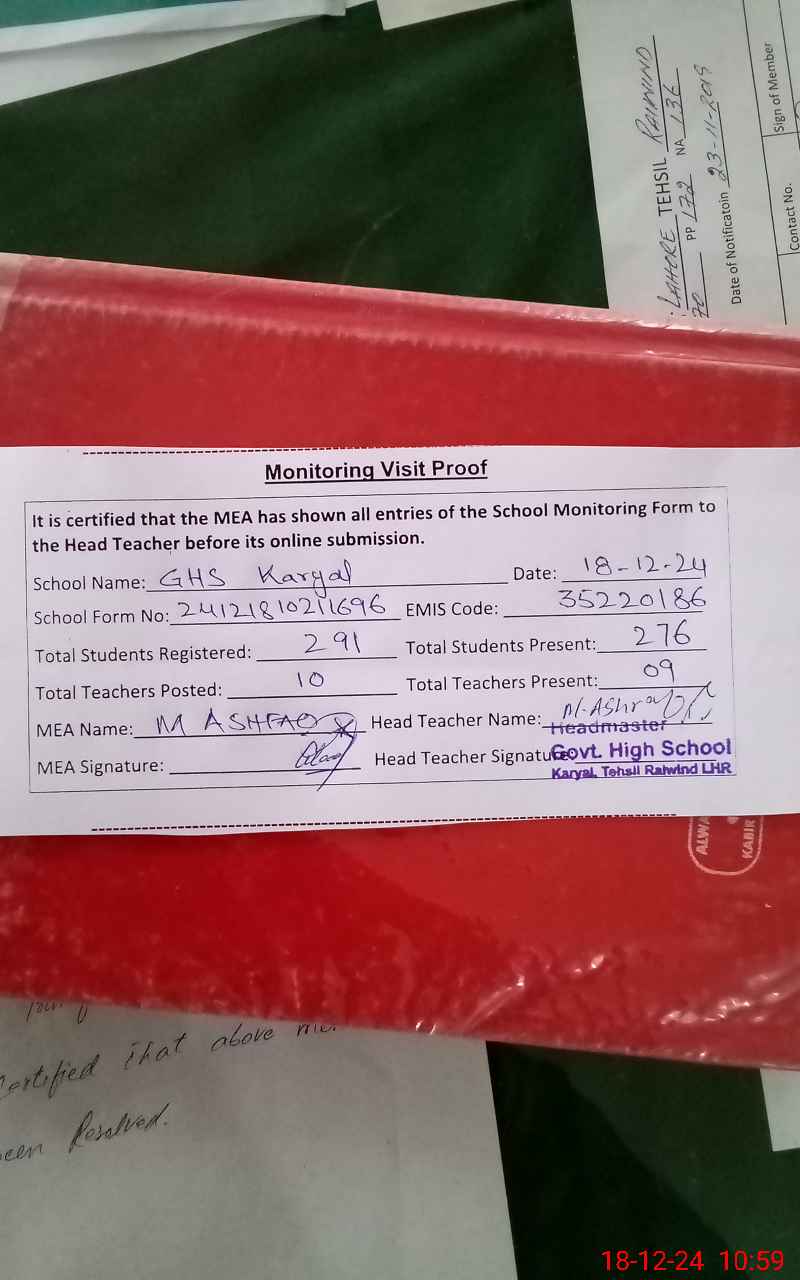 LAHORE TEHSIL RAIWIND
70 PP 172 NA 136
Date of Notificatoin 23-11-2019
Contact No. Sign of Member
Monitoring Visit Proof
It is certified that the MEA has shown all entries of the School Monitoring Form to
the Head Teacher before its online submission.
School Name: GHS Karyal Date: 18-12-24
School Form No: 24121810211696 EMIS Code: 35220186
Total Students Registered: 291 Total Students Present: 276
Total Teachers Posted: 10 Total Teachers Present: 09
MEA Name: M ASHFAQ Head Teacher Name: M. Ashraf
Headmaster
MEA Signature: Head Teacher Signature
Govt. High School
Karyal, Tehsil Raiwind LHR
ALWA
KABIR
Certified that above
been Resolved.
18-12-24 10:59